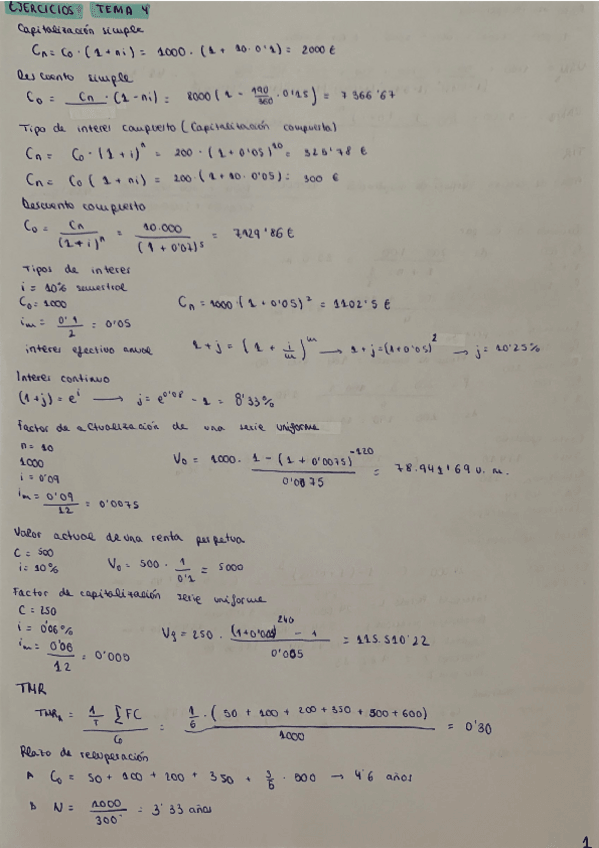 EJERCICIOS TEMA 4
Capitalización simple
Cn = Co · (1 + ni) = 1000 · (1 + 10 · 0'1) = 2000 €
Descuento simple
Co = Cn · (1 - ni) = 8000 (1 - 190/360 · 0'15) = 7366'67
Tipo de interes compuesto (Capitalización compuesta)
Cn = Co · (1 + i)^n = 200 · (1 + 0'05)^10 = 325'78 €
Cn = Co (1 + ni) = 200 · (1 + 10 · 0'05) = 300 €
Descuento compuesto
Co = Cn / (1+i)^n = 10.000 / (1 + 0'07)^5 = 7129'86 €
Tipos de interes
i = 10% semestral
Co = 1000 Cn = 1000 · (1 + 0'05)^2 = 1102'5 €
im = 0'1 / 2 = 0'05
interes efectivo anual 1 + j = (1 + i/m)^m → 1 + j = (1+0'05)^2 → j = 10'25%
Interes continuo
(1+j) = e^i → j = e^0'08 - 1 = 8'33%
Factor de actualización de una serie uniforme
n = 10
1000 Vo = 1000 · 1 - (1 + 0'0075)^-120 / 0'0075 = 78.941'69 u. m.
i = 0'09
im = 0'09 / 12 = 0'0075
Valor actual de una renta perpetua
C = 500
i = 10% Vo = 500 · 1 / 0'1 = 5000
Factor de capitalización serie uniforme
C = 250
i = 0'06% Vf = 250 · (1+0'005)^240 - 1 / 0'005 = 115.510'22
im = 0'06 / 12 = 0'005
TMR
TMRA = 1/T ∑ FC / Co = 1/6 · (50 + 100 + 200 + 350 + 500 + 600) / 1000 = 0'30
Plazo de recuperación
A Co = 50 + 100 + 200 + 350 + 3/5 · 500 → 4'6 años
B N = 1000 / 300 = 3'33 años
1